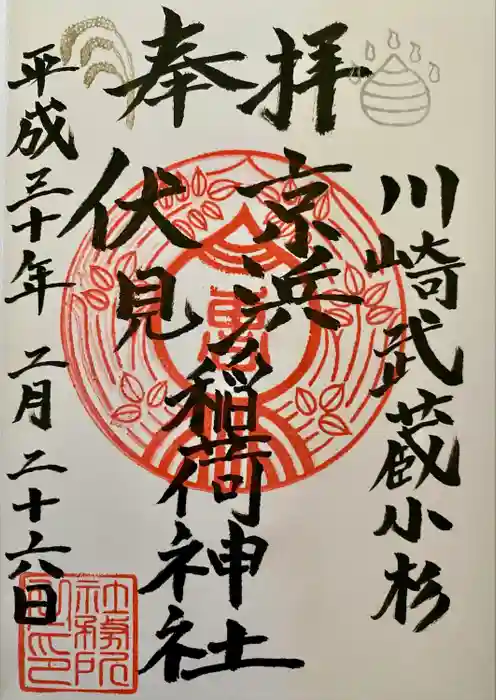 奉拝
川崎武蔵小杉
京浜
伏見
稲荷神社
平成三十年二月二十六日
社務所